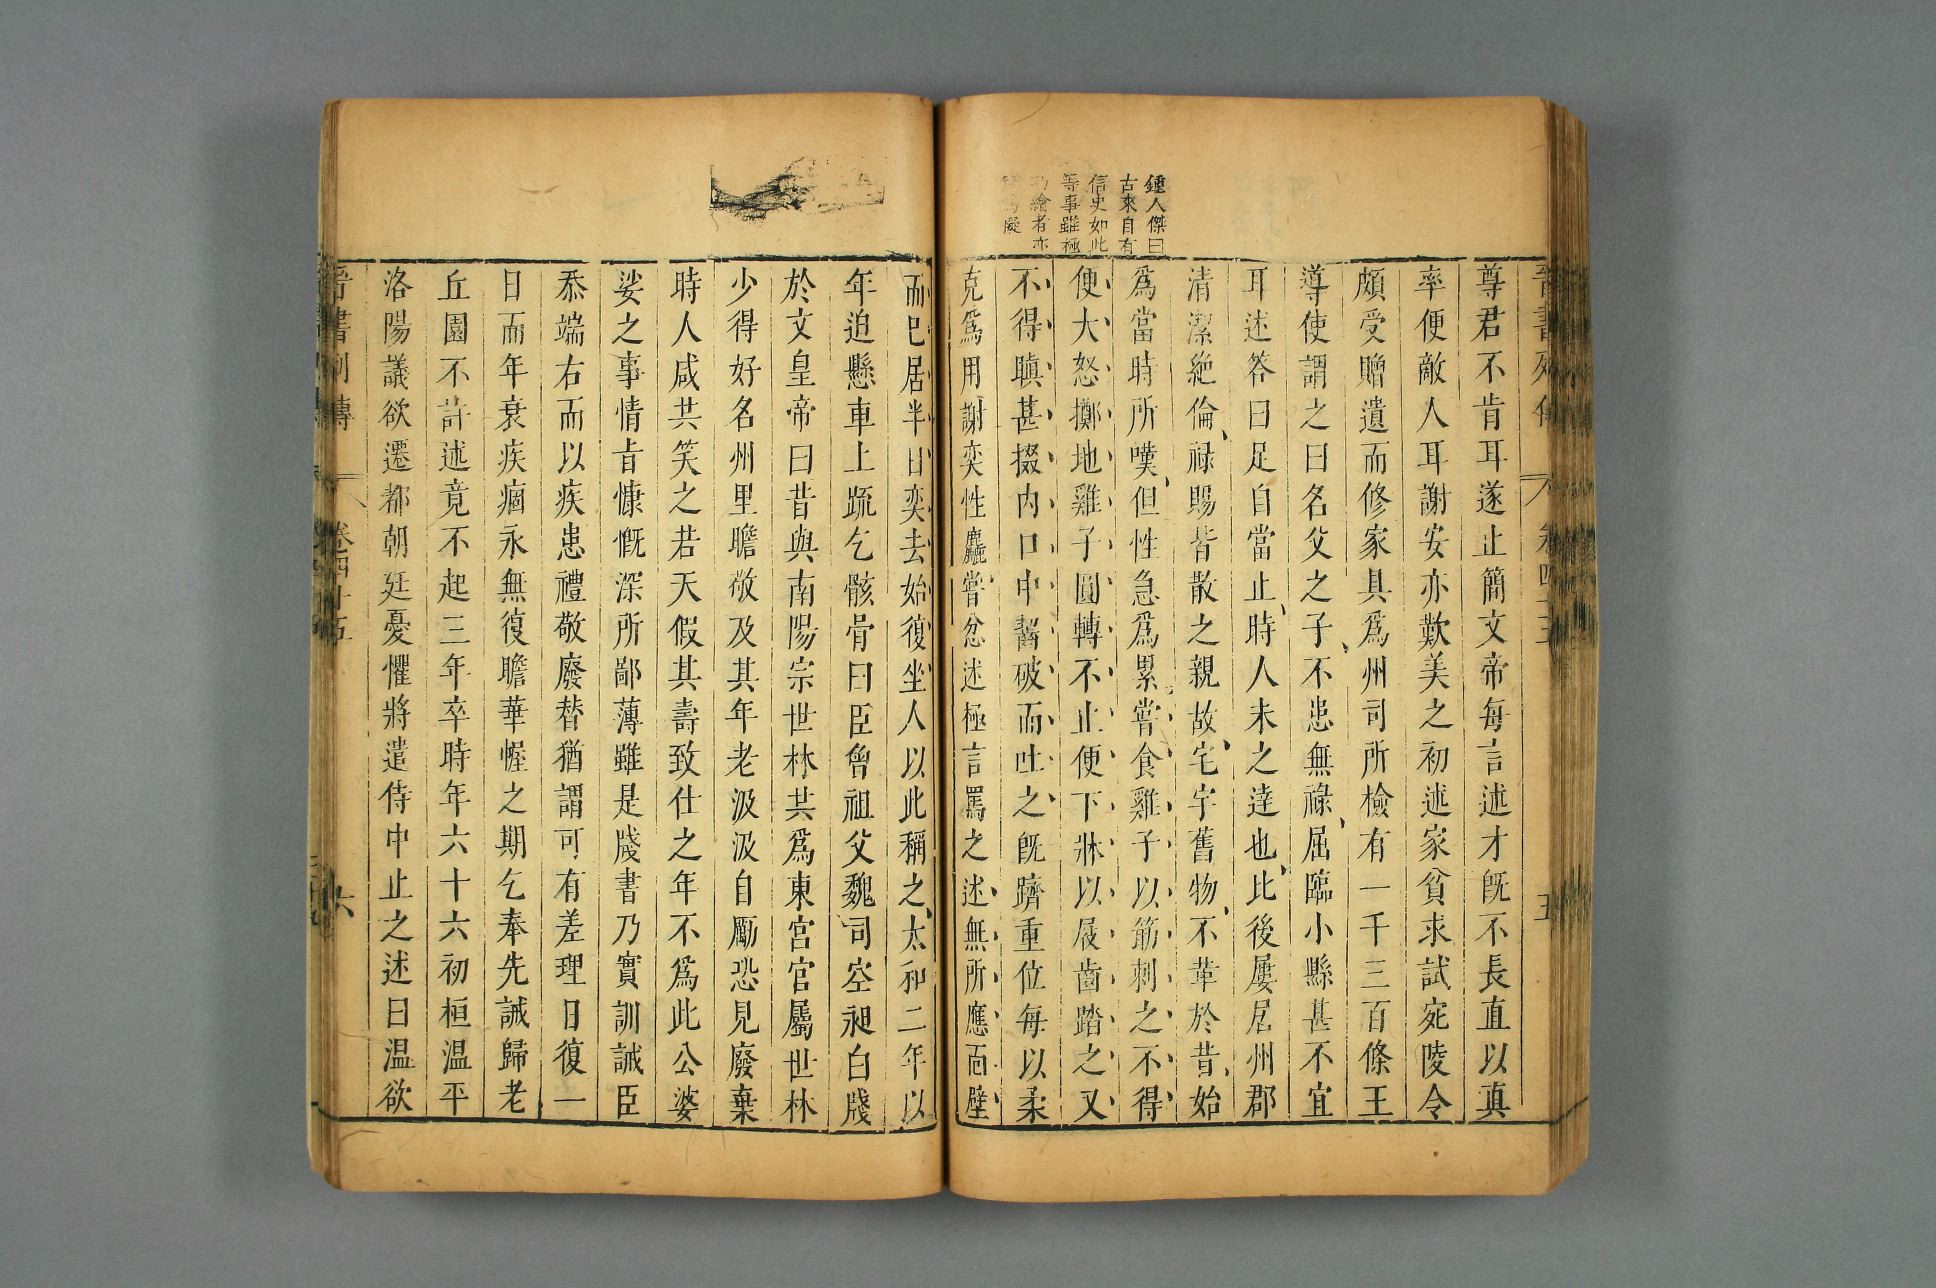 鍾人傑曰
古來自有
信史如此
等事雖極
繪者亦
處
晉書列傳 卷四十五 五
尊君不肯耳遂止簡文帝每言述才旣不長直以真
率便敵人耳謝安亦歎美之初述家貧求試宛陵令
頗受贈遺而修家具爲州司所檢有一千三百條王
導使謂之曰名父之子不患無祿屈臨小縣甚不宜
耳述答曰足自當止時人未之達也比後屢居州郡
清潔絶倫祿賜皆散之親故宅宇舊物不革於昔始
爲當時所嘆但性急爲累嘗食雞子以筯刺之不得
便大怒擲地雞子圓轉不止便下牀以屐齒踏之又
不得瞋甚掇內口中齧破而吐之旣躋重位每以柔
克爲用謝奕性麤嘗忿述極言罵之述無所應面壁
而已居半日奕去始復坐人以此稱之太和二年以
年迫懸車上疏乞骸骨曰臣曾祖父魏司空昶白牋
於文皇帝曰昔與南陽宗世林共爲東宮官屬世林
少得好名州里瞻敬及其年老汲汲自勵恐見廢棄
時人咸共笑之若天假其壽致仕之年不爲此公婆
娑之事情旨慷慨深所鄙薄雖是牋書乃實訓誡臣
忝端右而以疾患禮敬廢替猶謂可有差理日復一
日而年衰疾痼永無復瞻華幄之期乞奉先誡歸老
丘園不許述竟不起三年卒時年六十六初桓温平
洛陽議欲遷都朝廷憂懼將遣侍中止之述曰温欲
晉書列傳 卷四十五 六